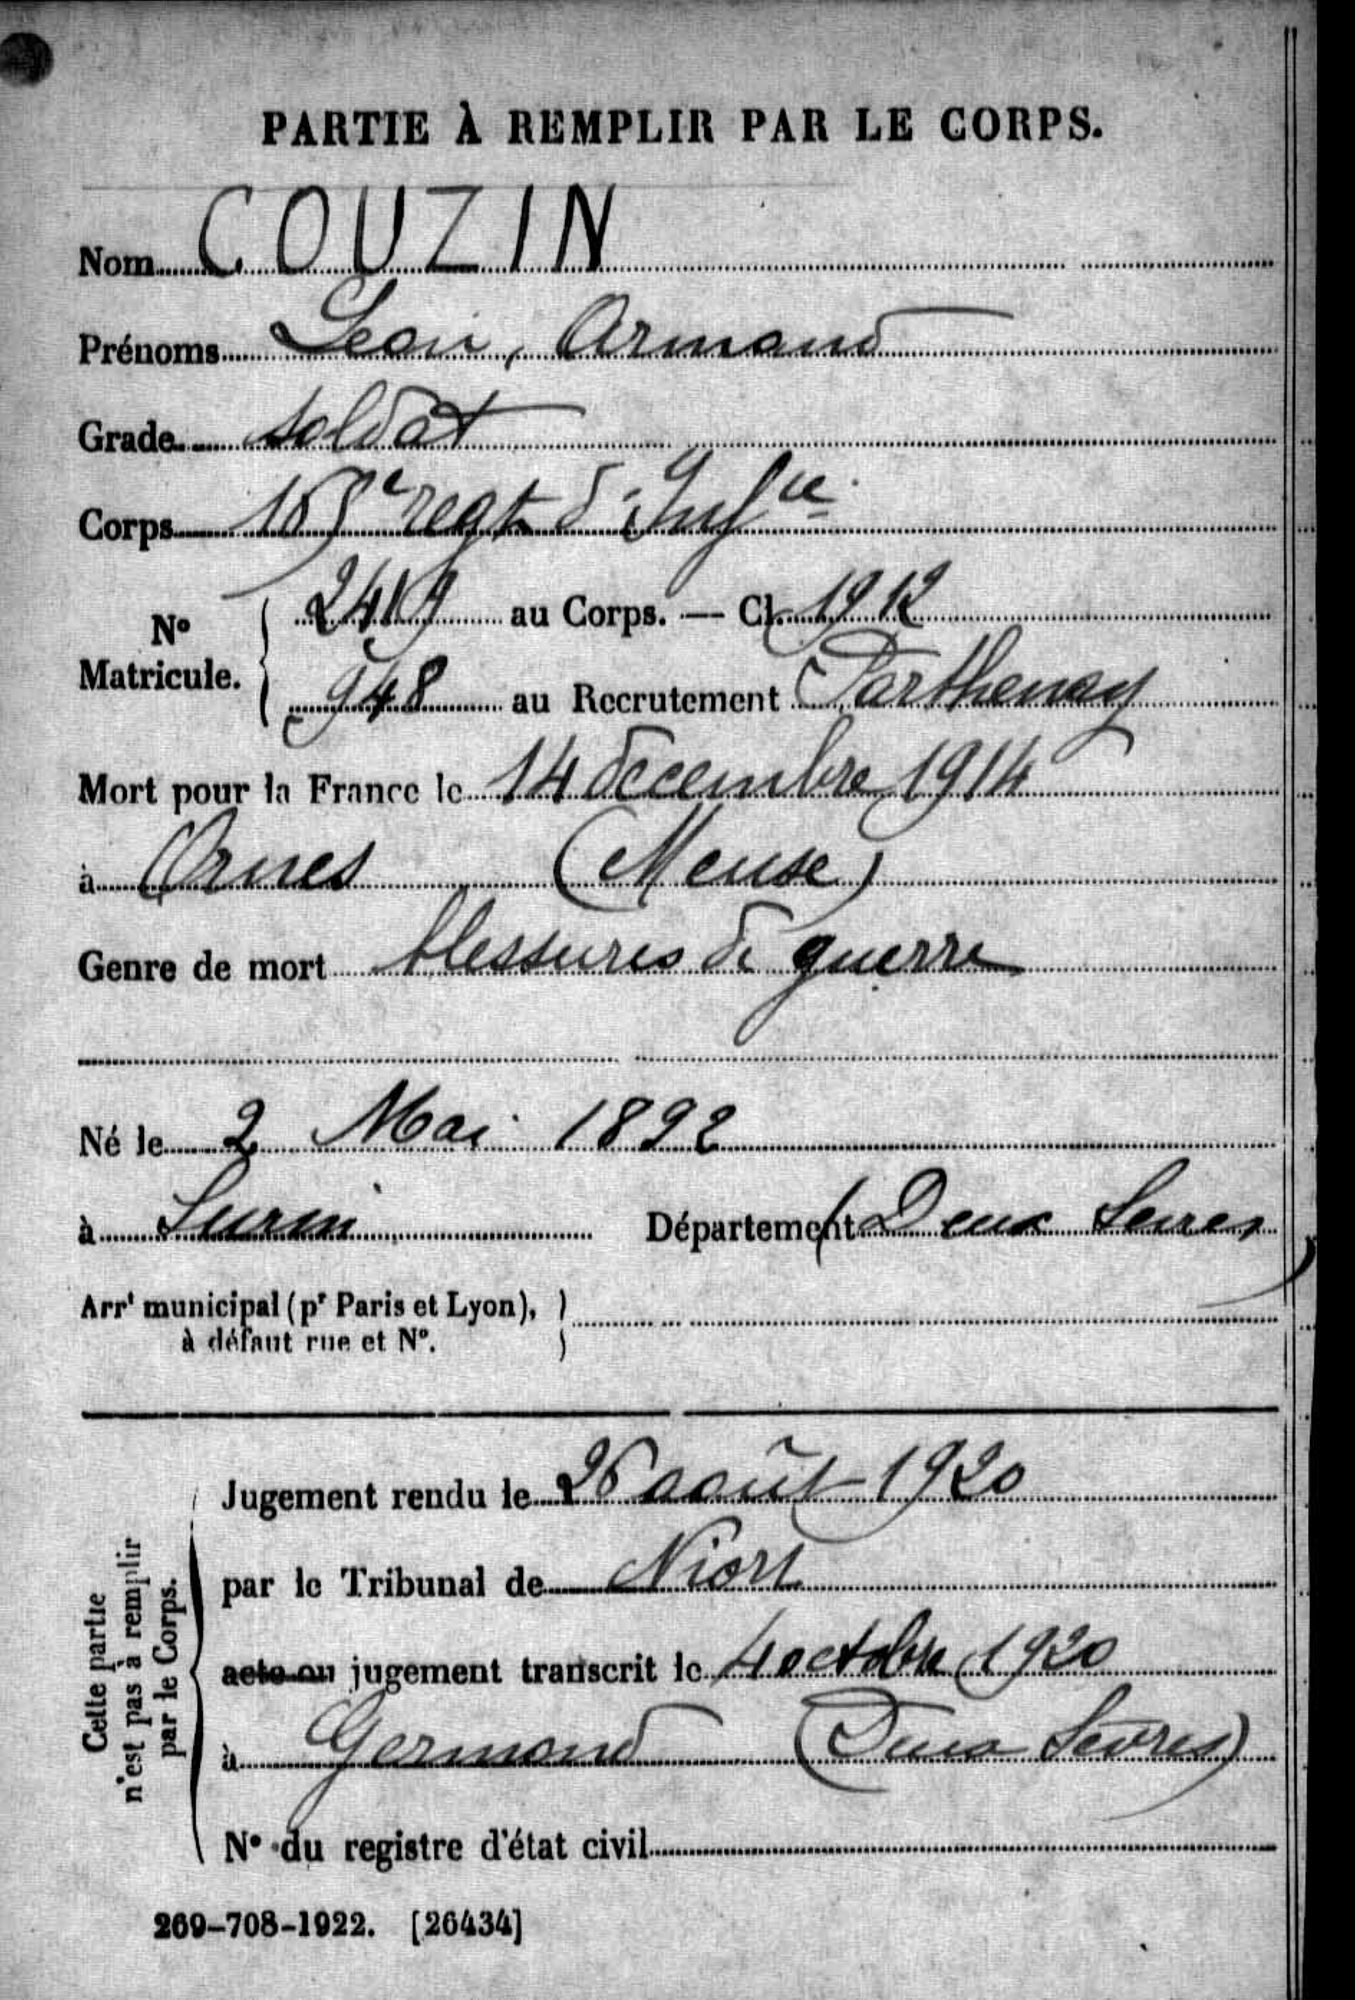 PARTIE À REMPLIR PAR LE CORPS.
Nom COUZIN
Prénoms Leon, Armand
Grade soldat
Corps 165e regt d'Infie
No Matricule. 2419 au Corps. — Cl. 1912
948 au Recrutement Parthenay
Mort pour la France le 14 decembre 1914
à Ornes (Meuse)
Genre de mort blessures de guerre
Né le 2 Mai 1892
à Surin Département (Deux Sevres)
Arrt municipal (pr Paris et Lyon),
à défaut rue et No.
Cette partie
n'est pas à remplir
par le Corps.
Jugement rendu le 26 août 1920
par le Tribunal de Niort
acte ou jugement transcrit le 4 octobre 1920
à Germond (Deux Sèvres)
No du registre d'état civil
269-708-1922. [26434]